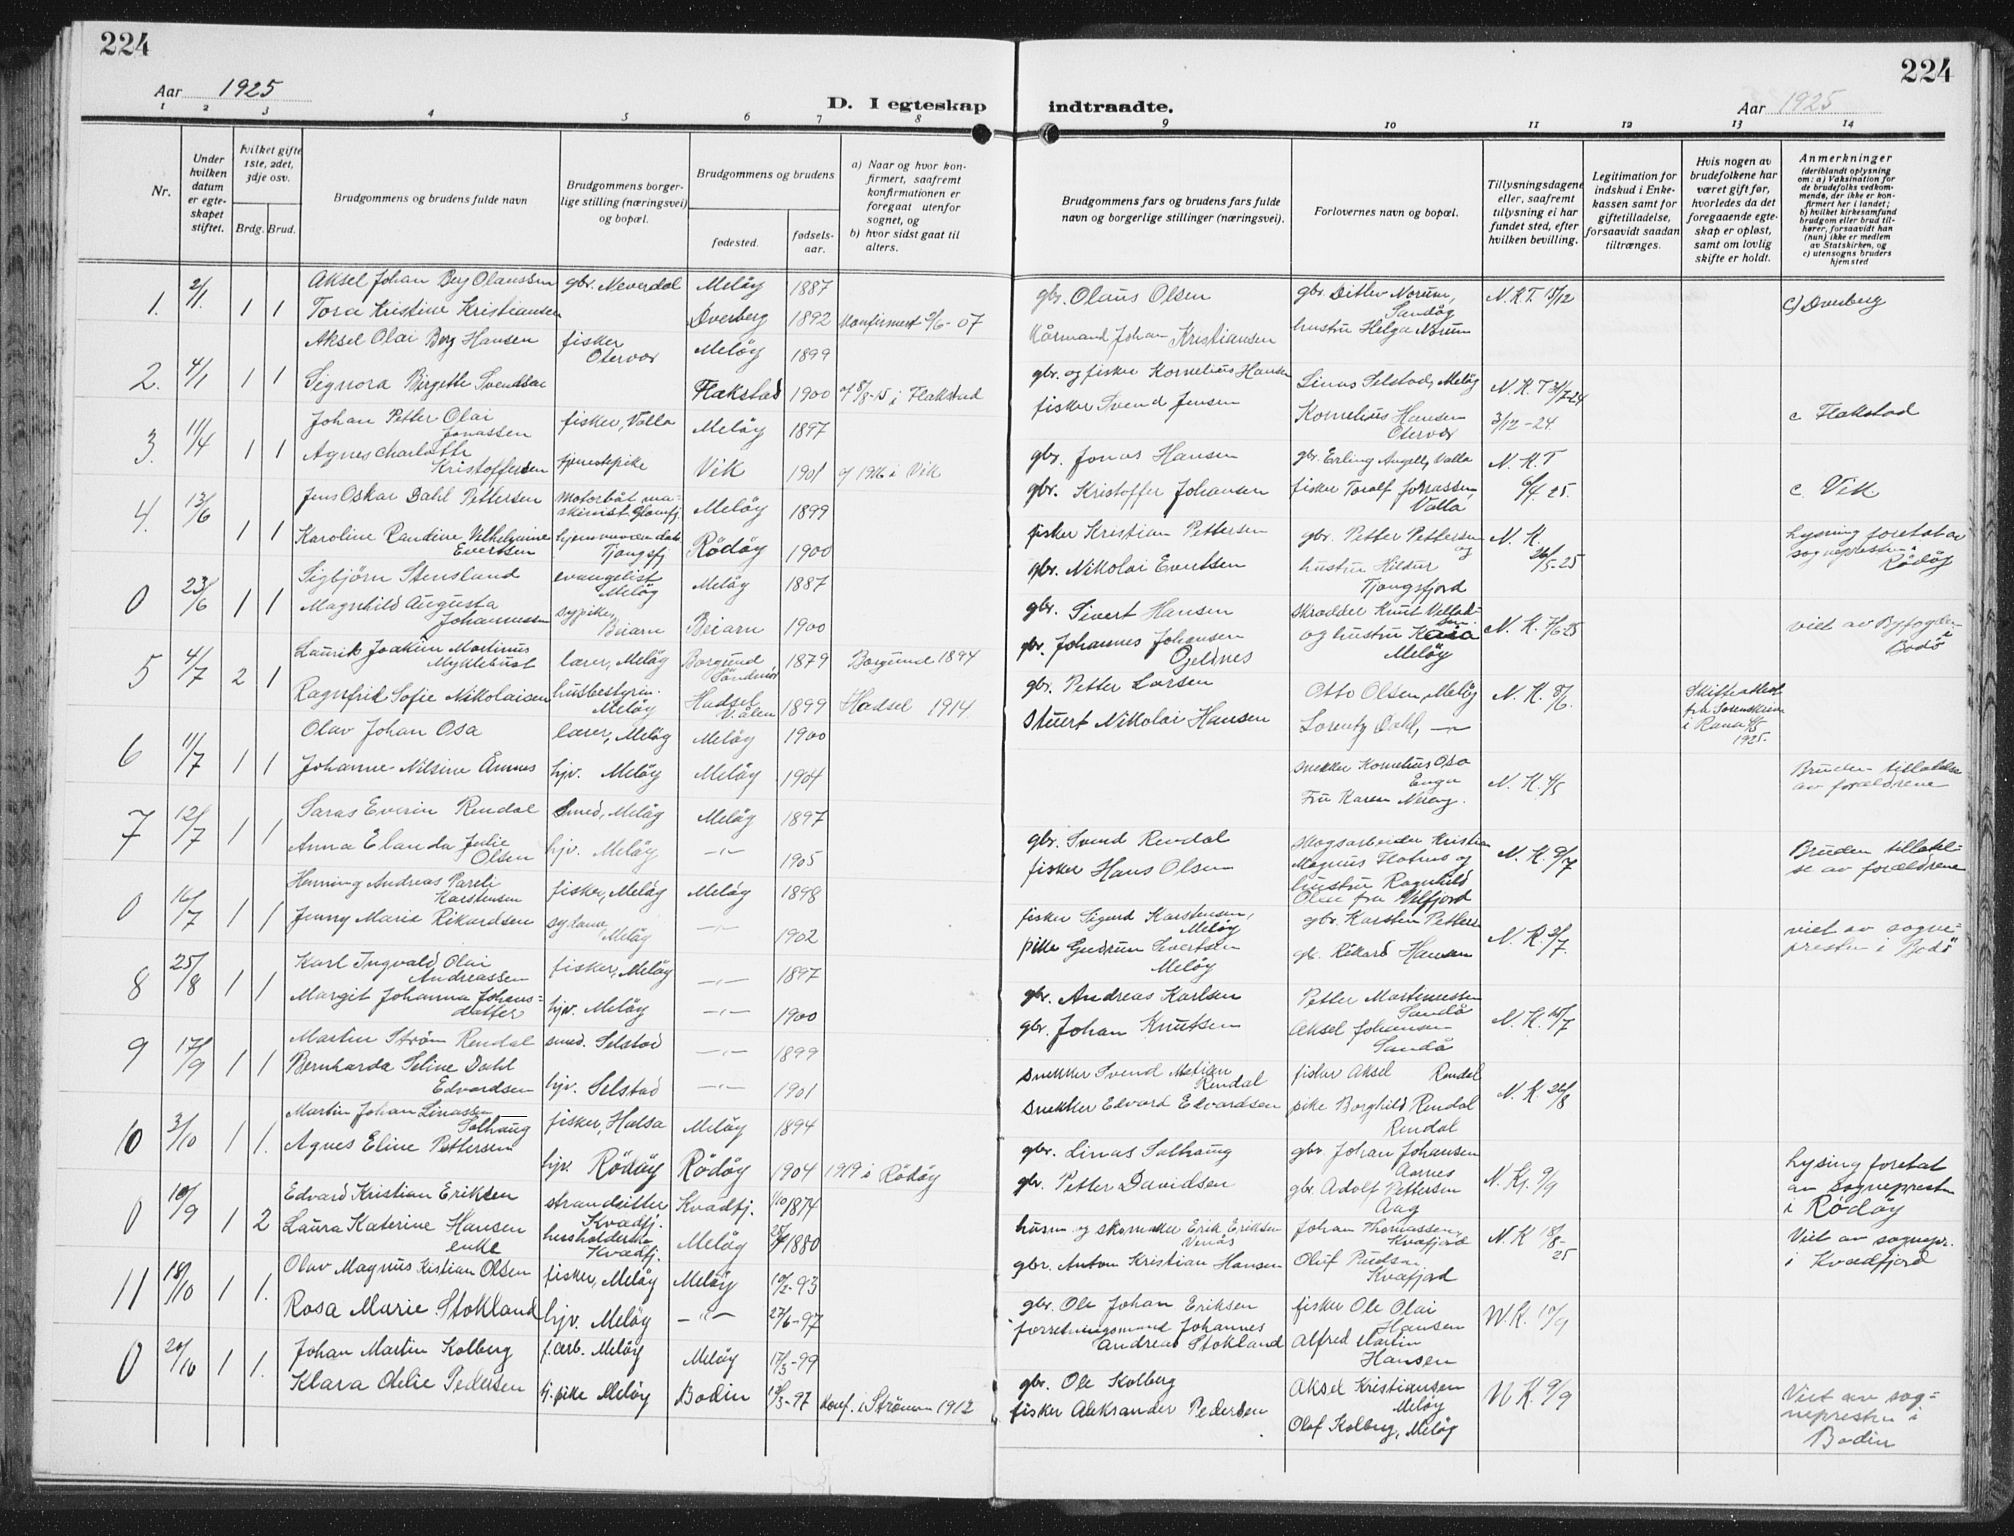 224
224
Aar 1925
D. I egteskap
indtraadte.
Aar 1925
1 2 3 4 5 6 7 8 9 10 11 12 13 14
Nr.
Under hvilken datum er egteskapet stiftet.
Hvilket gifte 1ste, 2det, 3dje osv.
Brdg. Brud.
Brudgommens og brudens fulde navn
Brudgommens borgerlige stilling (næringsvei) og bopæl.
Brudgommens og brudens
fødested.
fødselsaar.
a) Naar og hvor konfirmert, saafremt konfirmationen er foregaat utenfor sognet, og
b) hvor sidst gaat til alters.
Brudgommens fars og brudens fars fulde navn og borgerlige stillinger (næringsvei).
Forlovernes navn og bopæl.
Tillysningsdagene eller, saafremt tillysning ei har fundet sted, efter hvilken bevilling.
Legitimation for indskud i Enkekassen samt for giftetilladelse, forsaavidt saadan tiltrænges.
Hvis nogen av brudefolkene har været gift før, hvorledes da det foregaaende egteskap er opløst, samt om lovlig skifte er holdt.
Anmerkninger
(deriblandt oplysning om: a) Vaksination for de brudefolks vedkommende, der ikke er konfirmert her i landet; b) hvilket kirkesamfund brudgom eller brud tilhører, forsaavidt han (hun) ikke er medlem av Statskirken, og c) utensogns bruders hjemsted
1. 2/1 1 1 Aksel Johan Berg Olaussen gbr. Neverdal Meløy 1887 gbr. Olaus Olsen gbr. Ditlev Norum, Sandåg N.K.T. 15/12 c) Dverberg
Tora Kristine Kristiansen Dverberg 1892 Konfirmert 9/6-07 Kårmand Johan Kristiansen hustru Helga Norum
2. 4/1 1 1 Aksel Olai Berg Hansen fisker Otervær Meløy 1899 gbr. og fisker Kornelius Hansen Linas Selstad, Meløy N.K.T 31/7-24
Signora Birgitte Svendsen Flakstad 1900 8/8-15 i Flakstad fisker Svend Jensen Kornelius Hansen Otervær 3/12-24 c Flakstad
3. 11/4 1 1 Johan Petter Olai Jonassen fisker, Valla Meløy 1897 gbr. Jonas Hansen gbr. Erling Angell, Valla N.K.T
Agnes Charlotte Kristoffersen tjenestepike Vik 1901 1916 i Vik gbr. Kristoffer Johansen fisker Toralf Jonassen, Valla 6/4 25. c. Vik
4. 13/6 1 1 Jens Oskar Dahl Pettersen Motorbåt maskinist Glomfj. Meløy 1899 fisker Kristian Pettersen gbr. Petter Pettersen og N.K. 26/5-25 Lysning foretat av sognepresten i Rødøy
Karoline Randine Vilhelmine Evertsen hjemmeværende Tjongsfj Rödöy 1900 gbr. Nikolai Evertsen hustru Hildur Tjongsfjord
0 23/6 1 1 Sigbjørn Stensland evangelist Meløy Meløy 1887 gbr. Sivert Hansen skrædder Knut
Magnhild Augusta Johannessen sypike, Beiarn Beiarn 1900 gbr. Johannes Johansen Gjeldnes og hustru Kaia Meløy N.K. 7/6-25 viet av Byfogden i Bodö
5 4/7 2 1 Laurik Joakim Martinus Myklebust lærer, Meløy Borgund Söndmör 1879 Borgund 1894 gbr. Petter Larsen Otto Olsen, Meløy N.K. 8/6. Skifteattest fra Sorenskriven i Rana 1925.
Ragnfrik Sofie Nikolaisen husbestyrin. Meløy Hadsel 1899 Hadsel 1914. Stuert Nikolai Hansen Lorentz Dahl, —"—
6 11/7 1 1 Olav Johan Osa lærer, Meløy Meløy 1900 snekker Kornelius Osa Enga
Johanne Nilsine Amnes hjv. Meløy Meløy 1904 Fru Karen Nerøy. N.K. 4/5 Bruden tillatelse av forældrene
7 12/7 1 1 Saras Everin Rendal Smed, Meløy Meløy 1897 gbr. Svend Rendal Skogsarbeider Kristian Magnus Flotnes og
Anna Elanda Julie Olsen hjv. Meløy —"— 1905 fisker Hans Olsen hustru Ragnhild Oline fra Velfjord N.K. 9/7 Bruden tillatelse av forældrene
0 16/7 1 1 Henning Andreas Pareli Karstensen fisker, Meløy Meløy 1898 fisker Sigurd Karstensen, Meløy gbr. Karsten Pettersen
Jenny Marie Rikardsen sydame, Meløy —"— 1902 pike Gudrun Sivertsen Meløy gb. Rikard Hansen N.K. 2/7. viet av sognepresten i Bodö
8 25/8 1 1 Karl Ingvald Olai Andreassen fisker, Meløy —"— 1897 gbr. Andreas Karlsen Petter Martinussen Sandå
Margit Johanna Johansdatter hjv. Meløy —"— 1900 gbr. Johan Knutsen Aksel Johansen Sandå N.K. 15/7
9 17/9 1 1 Martin Ström Rendal smed. Selstad —"— 1899 snekker Svend Metian Rendal fisker Aksel Rendal
Bernharda Seline Dahl Edvardsen hjv. Selstad —"— 1901 snekker Edvard Edvardsen pike Borghild Rendal Rendal N.K. 26/8
10 3/10 1 1. Martin Johan Linassen Solhaug fisker, Halsa Meløy 1894 gbr. Linas Solhaug gbr. Johan Johansen Aarnes
Agnes Eline Pettersen hjv. Rödöy Rödöy 1904 1919 i Rödöy gbr. Petter Davidsen gbr. Adolf Pettersen Aag N.K. 9/9 Lysing foretat av sognepresten i Rødøy
0 19/9 1 2 Edvard Kristian Eriksen strandsitter Kvædfj. Kvædfj. 1/10 1874 husm og skomaker Erik Eriksen Johan Thomassen, Kvæfjord N.K 18/8-25 Viet av sognepr. i Kvædfjord
Laura Katerine Hansen enke husholderske Kvædfj. Meløy 1880 gbr. Anton Kristian Hansen Oluf Kvæfjord
11 18/10 1 1. Olav Magnus Kistian Olsen fisker, Meløy Meløy 19/2-93 gbr. Ole Johan Eriksen fisker Ole Olai Hansen
Rosa Marie Stokland hjv. Meløy —"— 27/6-97 forretningsmand Johannes Andreas Stokland Alfred Martin Hansen N.K. 19/9
0 20/10 1 1. Johan Martin Kolberg f.arb. Meløy Meløy 17/3-99 gbr. Ole Kolberg Aksel Kristiansen Meløy
Klara Otelie Pedersen tj.pike Meløy Bodin 15/3-97 Konf. i Strömen 1912 fisker Aleksander Pedersen Olaf Kolberg, Meløy N K. 9/9 Viet av sognepresten i Bodin